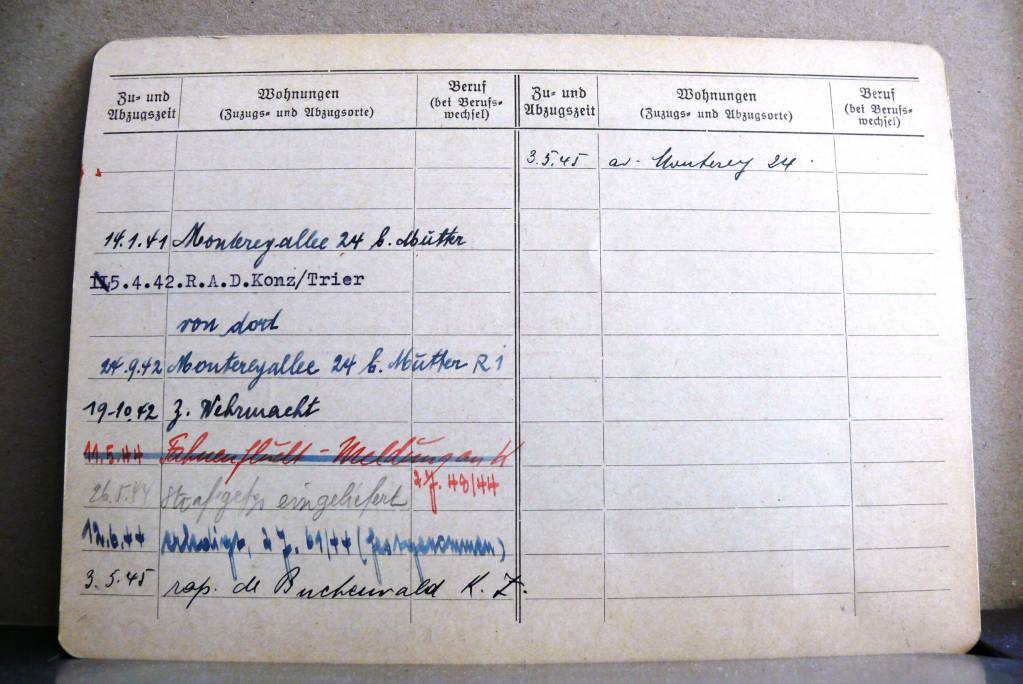 Zu- und Abzugszeit
Wohnungen
(Zuzugs- und Abzugsorte)
Beruf
(bei Berufs-
wechsel)
14.1.41 Montereyallee 24 b. Mutter
5.4.42. R.A.D.Konz/Trier
von dort
24.9.42 Montereyallee 24 b. Mutter R1
19.10.42 z. Wehrmacht
11.5.44 Fahnenflucht - Meldung an K
2J. 48/44
26.5.44 eingeliefert
12.6.44 erledigt, 2 J. 61/44 (festgenommen)
3.5.45 rap. de Buchenwald K. Z.
Zu- und Abzugszeit
Wohnungen
(Zuzugs- und Abzugsorte)
Beruf
(bei Berufs-
wechsel)
3.5.45 av. Monterey 24.